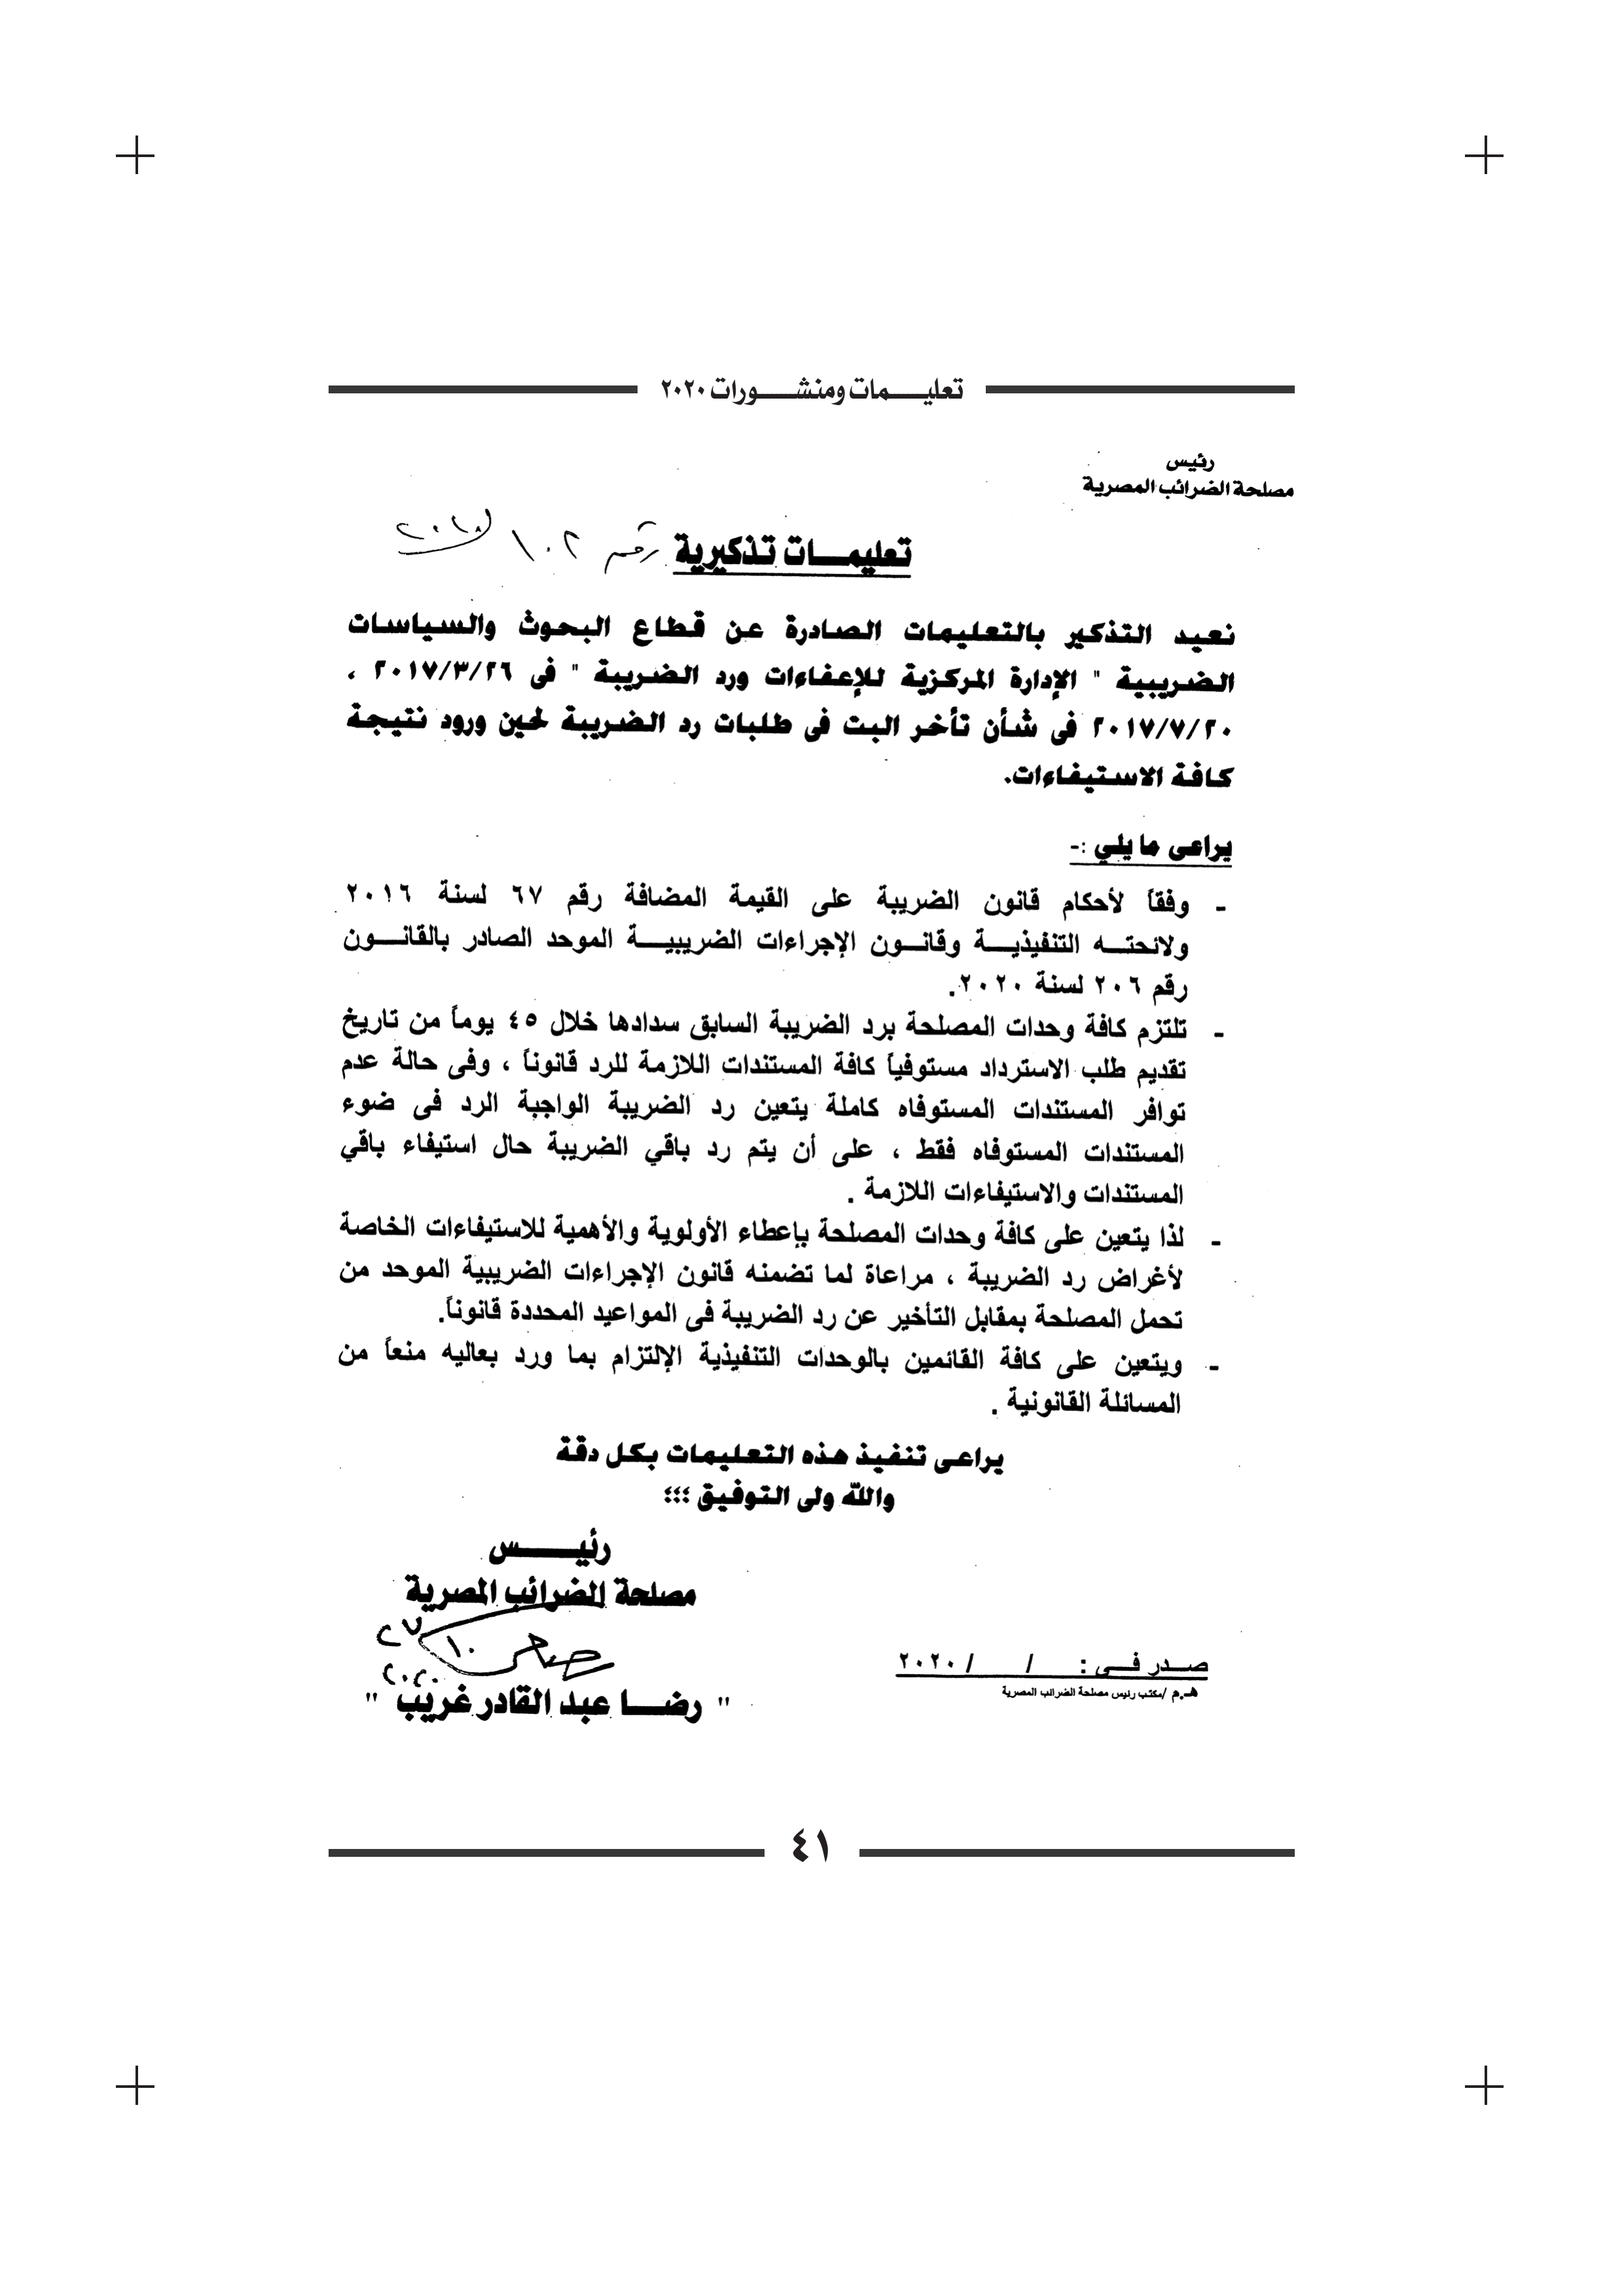 تعليمات ومنشورات ٢٠٢٠
رئيس
مصلحة الضرائب المصرية
تعليمات تذكيرية رقم ١٠٢
نعيد التذكير بالتعليمات الصادرة عن قطاع البحوث والسياسات
الضريبية " الإدارة المركزية للإعفاءات ورد الضريبة " فى ٢٠١٧/٣/٢٦ ،
٢٠١٧/٧/٢٠ فى شأن تأخر البت فى طلبات رد الضريبة لحين ورود نتيجة
كافة الاستيفاءات.
يراعى ما يلي :-
- وفقاً لأحكام قانون الضريبة على القيمة المضافة رقم ٦٧ لسنة ٢٠١٦
ولائحته التنفيذية وقانون الإجراءات الضريبية الموحد الصادر بالقانون
رقم ٢٠٦ لسنة ٢٠٢٠.
- تلتزم كافة وحدات المصلحة برد الضريبة السابق سدادها خلال ٤٥ يوماً من تاريخ
تقديم طلب الاسترداد مستوفياً كافة المستندات اللازمة للرد قانوناً ، وفى حالة عدم
توافر المستندات المستوفاه كاملة يتعين رد الضريبة الواجبة الرد فى ضوء
المستندات المستوفاه فقط ، على أن يتم رد باقي الضريبة حال استيفاء باقي
المستندات والاستيفاءات اللازمة .
- لذا يتعين على كافة وحدات المصلحة بإعطاء الأولوية والأهمية للاستيفاءات الخاصة
لأغراض رد الضريبة ، مراعاة لما تضمنه قانون الإجراءات الضريبية الموحد من
تحمل المصلحة بمقابل التأخير عن رد الضريبة فى المواعيد المحددة قانوناً.
- ويتعين على كافة القائمين بالوحدات التنفيذية الإلتزام بما ورد بعاليه منعاً من
المسائلة القانونية .
يراعى تنفيذ هذه التعليمات بكل دقة
والله ولى التوفيق ؛؛؛
رئيس
مصلحة الضرائب المصرية
٢٧
١٠
٢٠٢٠
" رضا عبد القادر غريب "
صدر فى : / / ٢٠٢٠
هـ.م /مكتب رئيس مصلحة الضرائب المصرية
٤١